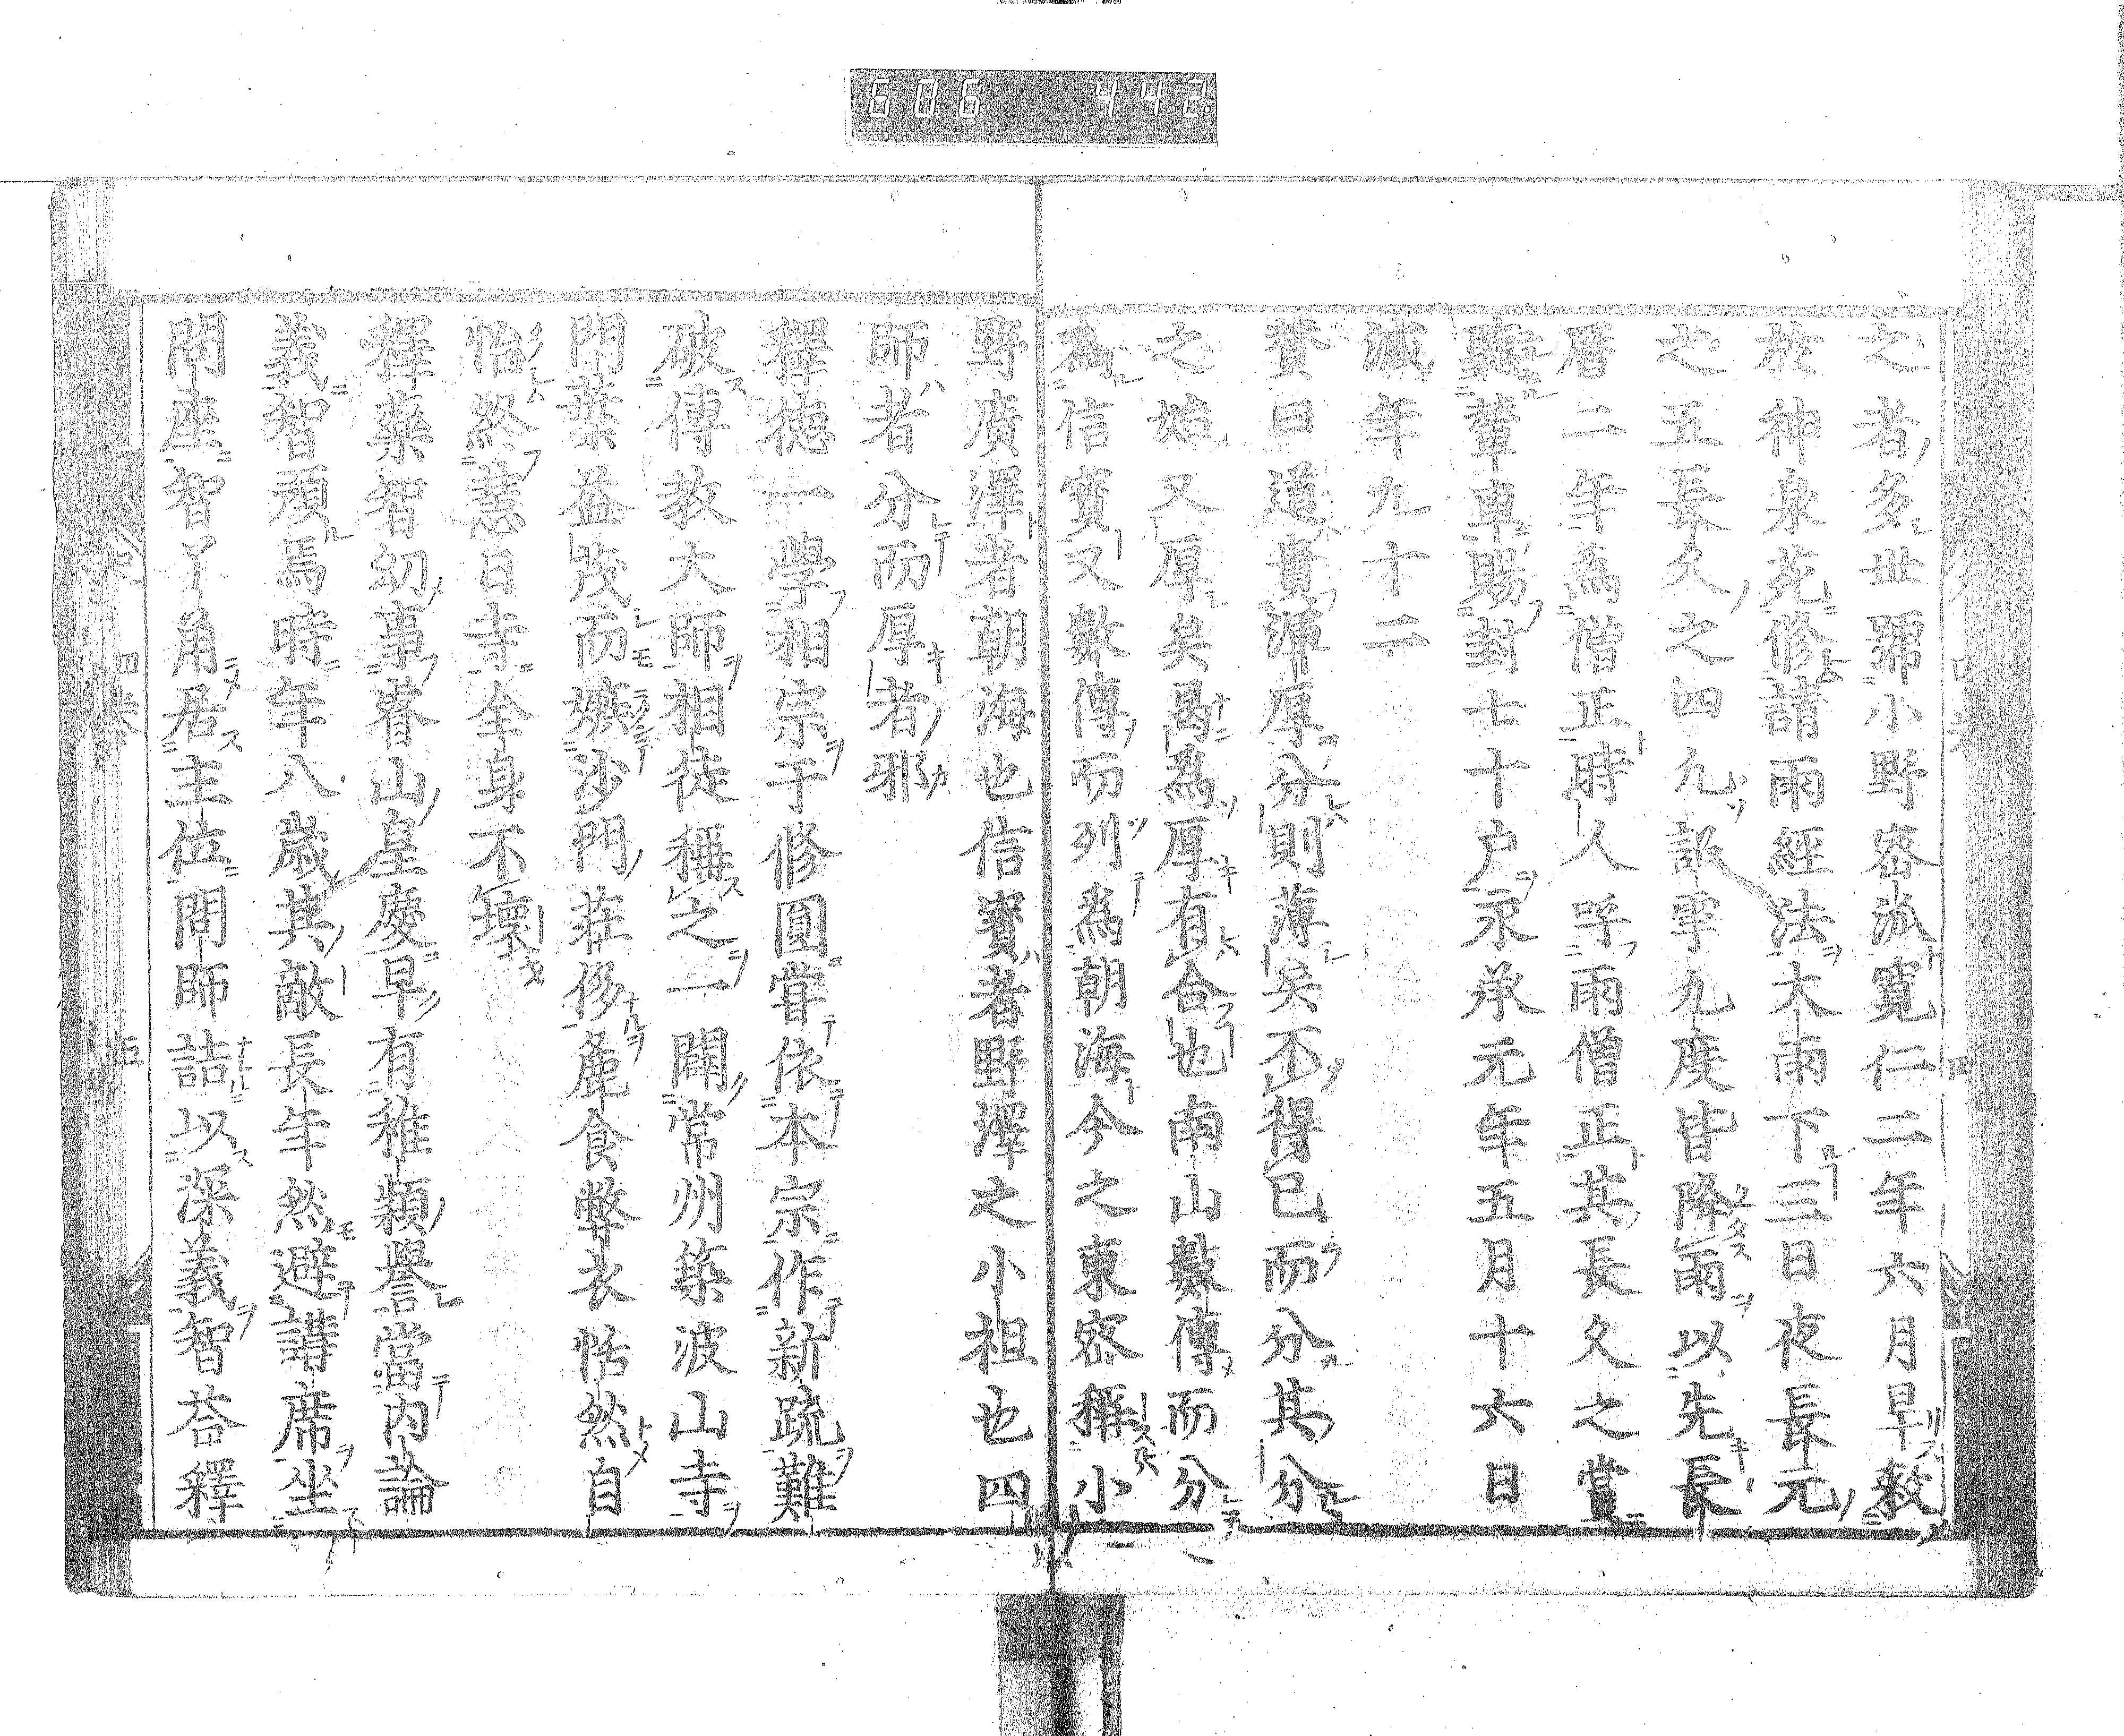 606 442
之者多世號小野密派寛仁二年六月旱敕
於神泉苑修請雨經法大雨下三日夜長元
之五長久之四九訴零九度皆降雨以先長
曆二年為僧正時人呼雨僧正其長久之賞
聽輦車賜封七十户永承元年五月十六日
滅年九十二
賛曰道貴渾厚分則薄矣不得已而分其分
之始又厚矣曷為厚有合也南山數傳而分
為信寶又數傳而列為朝海今之東密稱小
野廣澤者朝海也信寶者野澤之小祖也四
師者分而厚者邪
釋德一學相宗于修圓嘗依本宗作新疏難
破傳教大師相徒稱之一闢常州築波山寺
門葉益茂而嫉沙門莊侈麁食弊衣恬然自
怡終慧日寺全身不壞
釋藥智幼事睿山皇慶早有稚穎譽當内論
義智預焉時年八歳其敵長年然避講席坐
問座智丫角居主位問師詰以深義智荅釋